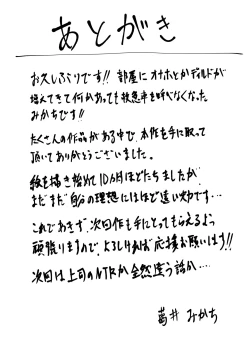 あとがき
お久しぶりです!! 部屋にオナホとかディルドが
増えてきて何かあっても救急車を呼べなくなった
みかちです!!
たくさんの作品がある中で、本作を手に取って
頂いてありがとうございました。
絵を描き始めて10ヵ月ほどたちましたが
まだまだ自分の理想にはほど遠い力です…
これであきず、次回作も手にとってもらえるよう
頑張りますので、よろしければ応援お願いします!!
次回は上司のNTRか全然違う話か….
葛井 みかち